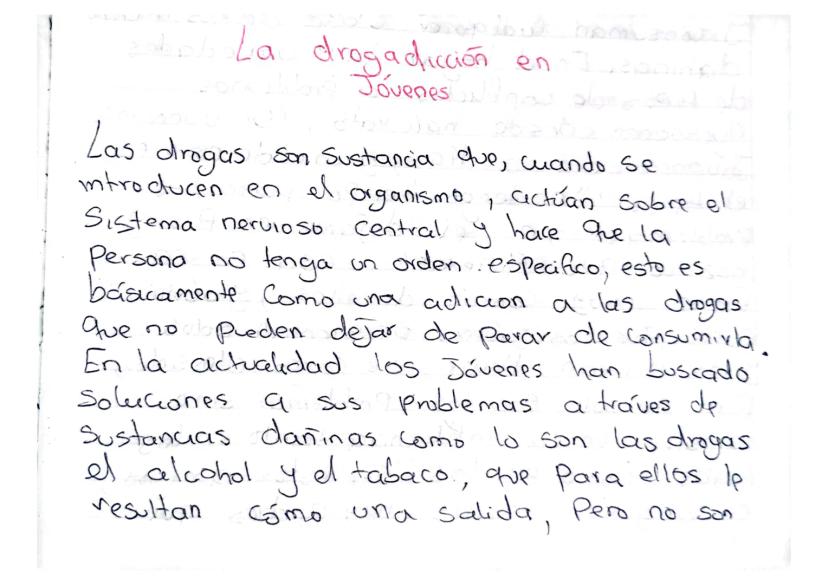 La drogadicción en
Jóvenes
Las drogas son sustancia que, cuando se
introducen en el organismo, actúan sobre el
sistema nervioso central y hace que la
persona no tenga un orden especifico, esto es
básicamente como una adicion a las drogas
que no pueden dejar de parar de consumirla.
En la actualidad los Jóvenes han buscado
soluciones a sus problemas a tráves de
sustancias dañinas como lo son las drogas
el alcohol y el tabaco, que para ellos le
resultan cómo una salida, pero no son